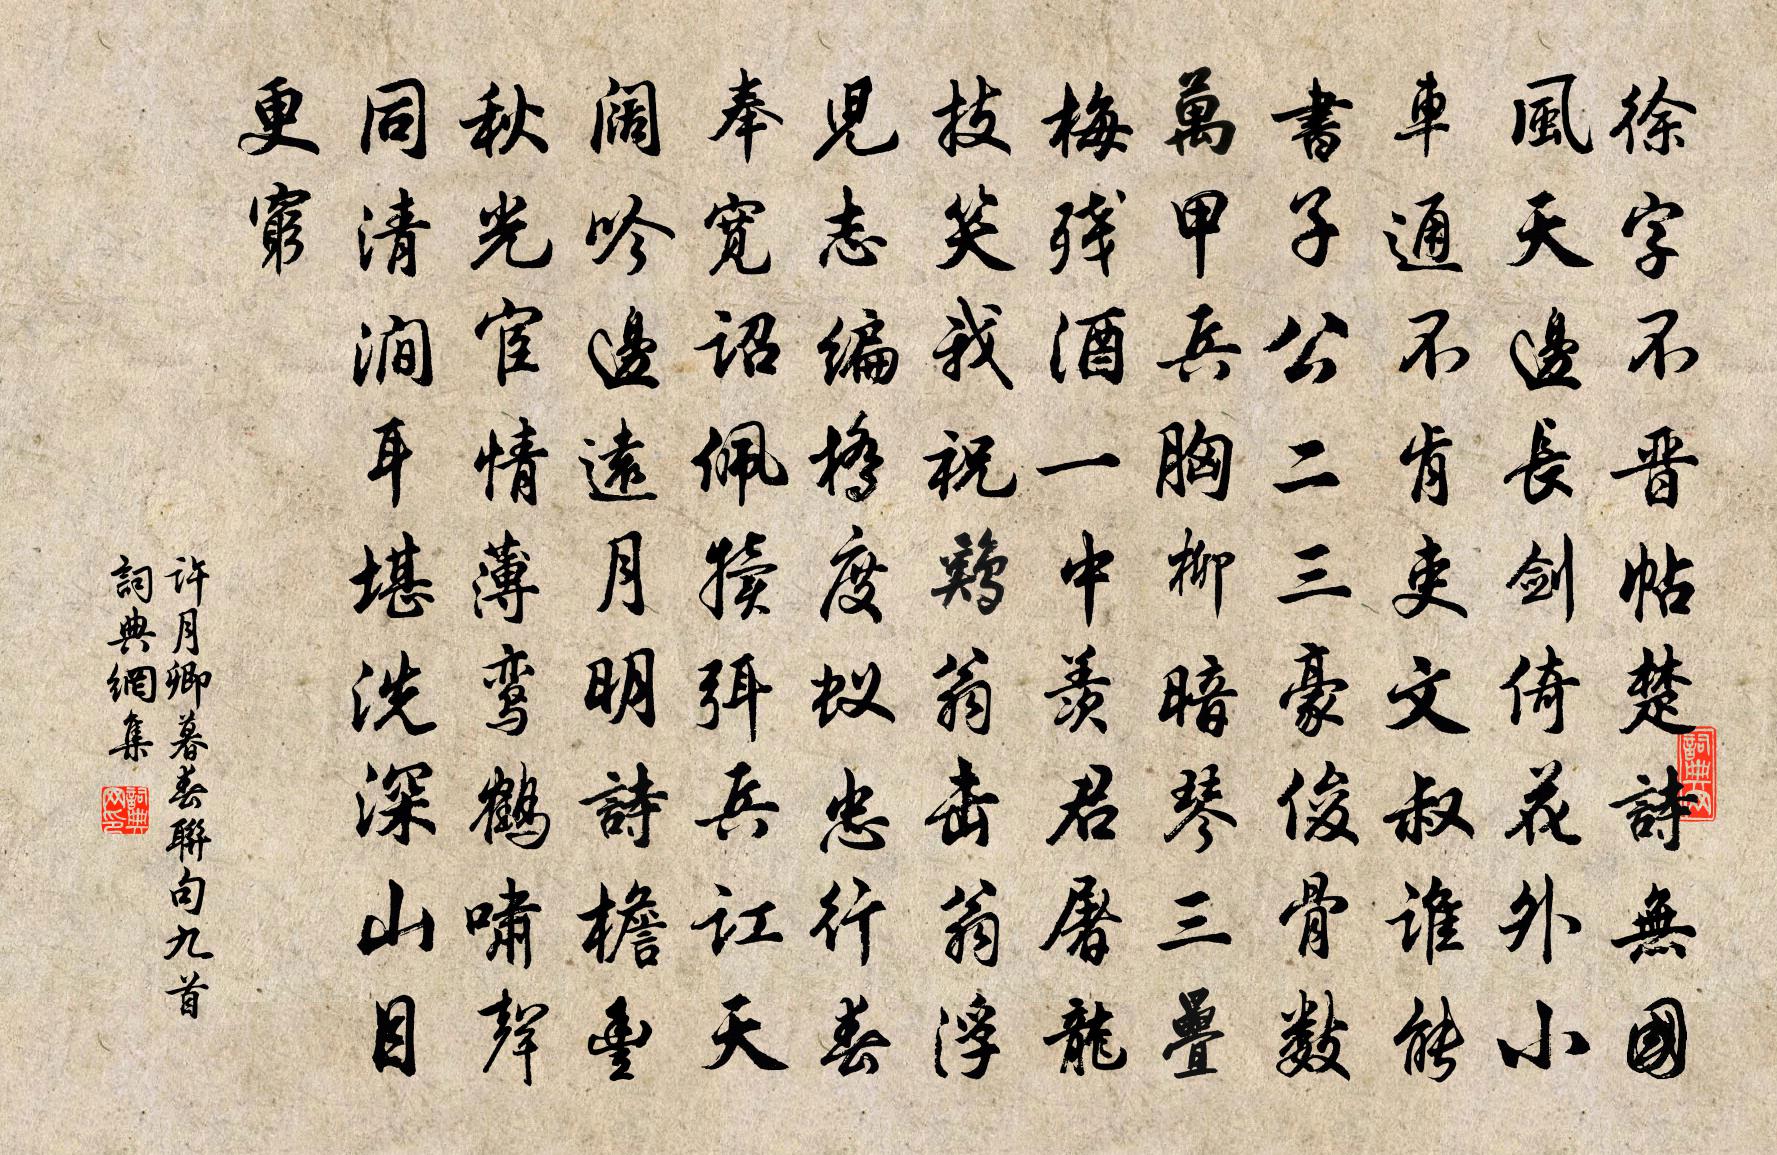 徐字不晋帖楚詩無國
風天邊長劍倚花外小
車通不肯吏文叔谁能
書子公二三豪俊骨数
萬甲兵胸柳暗琴三疊
梅残酒一中羨君屠龍
技笑我祝鷄翁击翁浮
児志编橋度蚁忠行春
奉寛詔佩犊弭兵讧天
阔吟邊遠月明詩檐豊
秋光宦情薄鸾鶴啸聲
同清澗耳堪洗深山目
更窮
许月卿暮春聯句九首
詞典網集